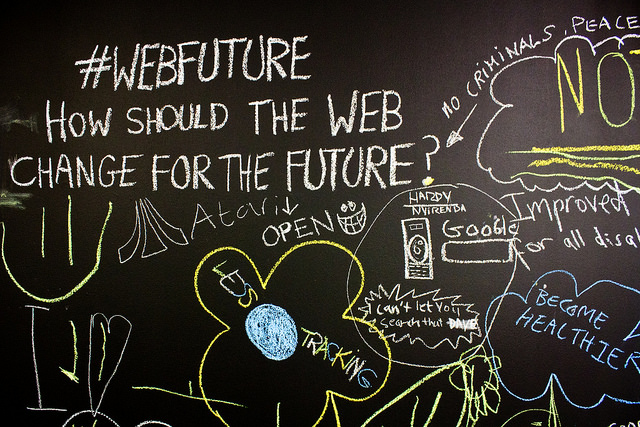 #WEBFUTURE
HOW SHOULD THE WEB
CHANGE FOR THE FUTURE?
NO CRIMINALS, PEACE
NO
Atari
OPEN
HARDY
NYIRENDA
Google
G
Improved
for all disa
I can't let you
search that DAVE
LESS
TRACKING
BECOME
HEALTHIER